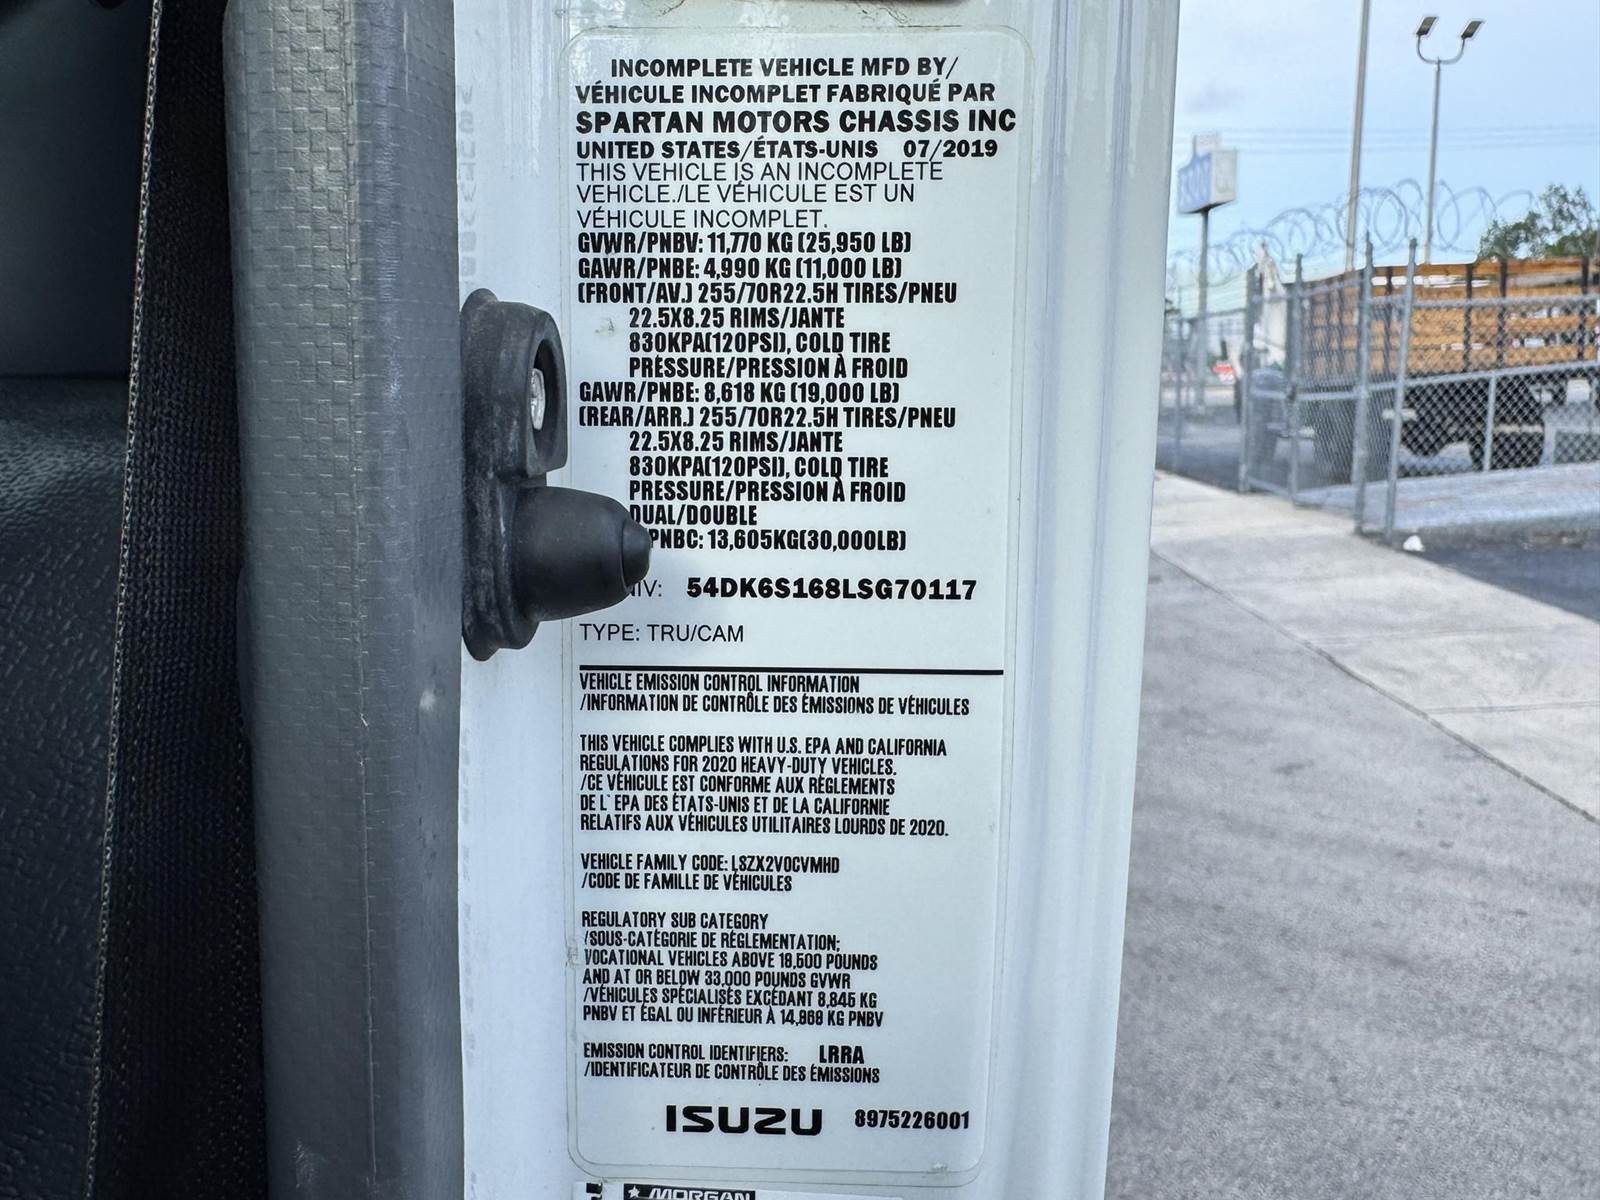 INCOMPLETE VEHICLE MFD BY/
VÉHICULE INCOMPLET FABRIQUÉ PAR
SPARTAN MOTORS CHASSIS INC
UNITED STATES/ÉTATS-UNIS 07/2019
THIS VEHICLE IS AN INCOMPLETE
VEHICLE./LE VÉHICULE EST UN
VÉHICULE INCOMPLET.
GVWR/PNBV: 11,770 KG (25,950 LB)
GAWR/PNBE: 4,990 KG (11,000 LB)
(FRONT/AV.) 255/70R22.5H TIRES/PNEU
22.5X8.25 RIMS/JANTE
830KPA(120PSI), COLD TIRE
PRESSURE/PRESSION À FROID
GAWR/PNBE: 8,618 KG (19,000 LB)
(REAR/ARR.) 255/70R22.5H TIRES/PNEU
22.5X8.25 RIMS/JANTE
830KPA(120PSI), COLD TIRE
PRESSURE/PRESSION À FROID
DUAL/DOUBLE
PNBC: 13,605KG(30,000LB)
NIV: 54DK6S168LSG70117
TYPE: TRU/CAM
VEHICLE EMISSION CONTROL INFORMATION
/INFORMATION DE CONTRÔLE DES ÉMISSIONS DE VÉHICULES
THIS VEHICLE COMPLIES WITH U.S. EPA AND CALIFORNIA
REGULATIONS FOR 2020 HEAVY-DUTY VEHICLES.
/CE VÉHICULE EST CONFORME AUX RÈGLEMENTS
DE L`EPA DES ÉTATS-UNIS ET DE LA CALIFORNIE
RELATIFS AUX VÉHICULES UTILITAIRES LOURDS DE 2020.
VEHICLE FAMILY CODE: LSZX2VOCVMHD
/CODE DE FAMILLE DE VÉHICULES
REGULATORY SUB CATEGORY
/SOUS-CATÉGORIE DE RÉGLEMENTATION:
VOCATIONAL VEHICLES ABOVE 19,500 POUNDS
AND AT OR BELOW 33,000 POUNDS GVWR
/VÉHICULES SPÉCIALISÉS EXCÉDANT 8,845 KG
PNBV ET ÉGAL OU INFÉRIEUR À 14,969 KG PNBV
EMISSION CONTROL IDENTIFIERS: LRRA
/IDENTIFICATEUR DE CONTRÔLE DES ÉMISSIONS
ISUZU 8975226001
MORGAN